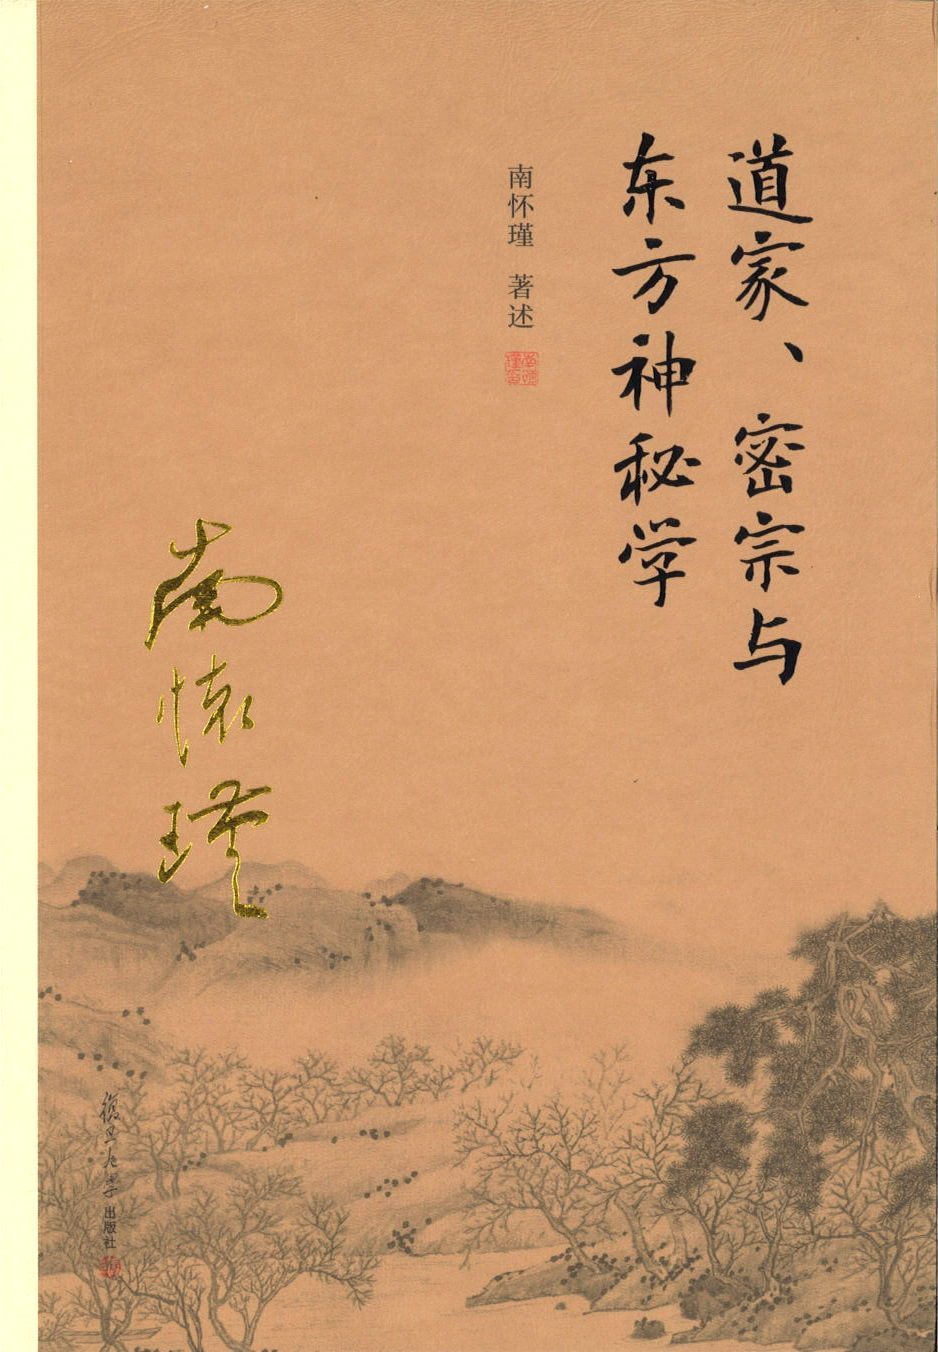 道家、密宗与
东方神秘学
南怀瑾 著述
南懷瑾
復旦大学出版社